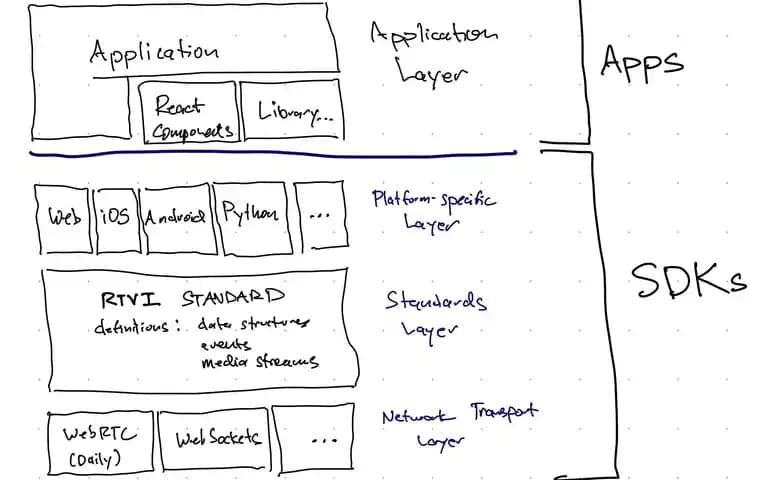 Application
Application
Layer
Apps
React
Components
Library...
Web
iOS
Android
Python
...
Platform-specific
Layer
SDKs
RTVI STANDARD
definitions: data structures
events
media streams
Standards
Layer
WebRTC
(Daily)
WebSockets
...
Network Transport
Layer